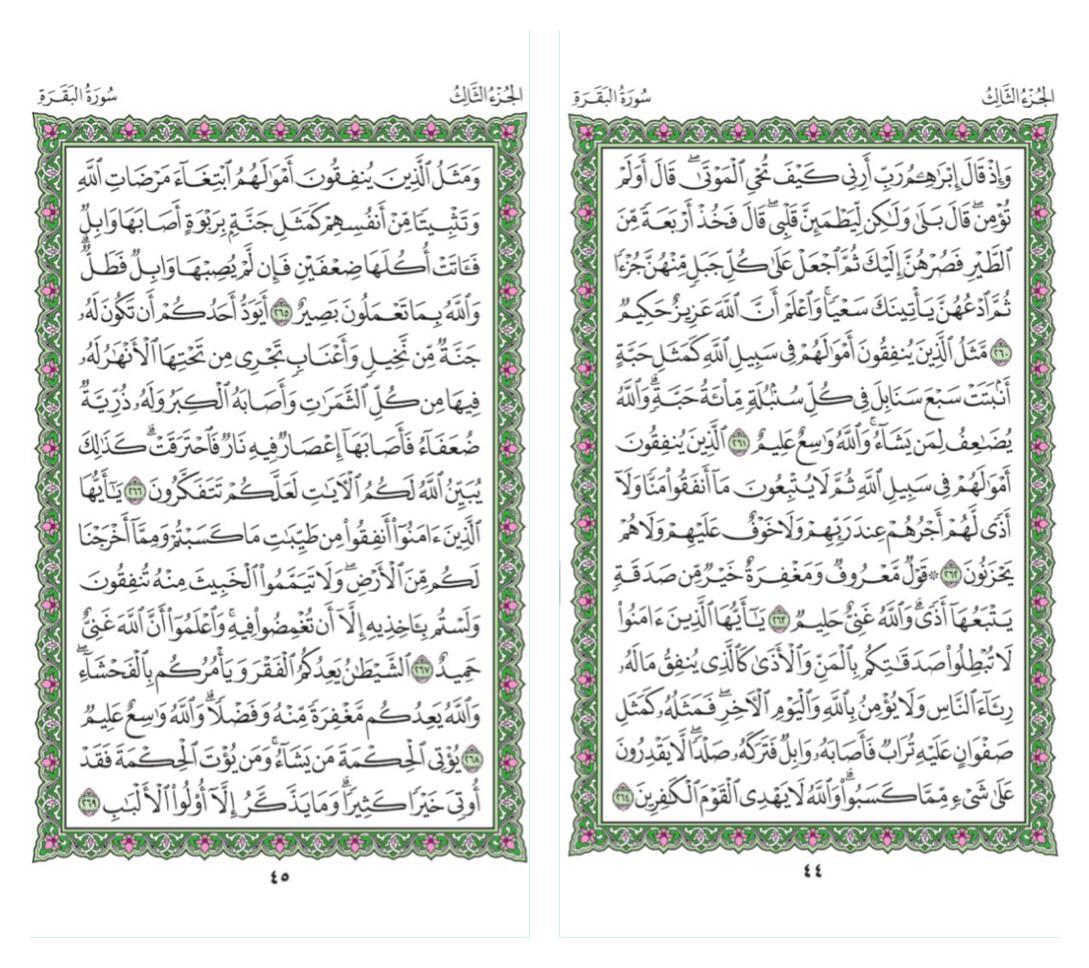 الجزء الثالث
سورة البقرة
وَإِذْ قَالَ إِبْرَٰهِـۧمُ رَبِّ أَرِنِي كَيْفَ تُحْيِ ٱلْمَوْتَىٰۖ قَالَ أَوَلَمْ
تُؤْمِنۖ قَالَ بَلَىٰ وَلَٰكِن لِّيَطْمَئِنَّ قَلْبِيۖ قَالَ فَخُذْ أَرْبَعَةً مِّنَ
ٱلطَّيْرِ فَصُرْهُنَّ إِلَيْكَ ثُمَّ ٱجْعَلْ عَلَىٰ كُلِّ جَبَلٍ مِّنْهُنَّ جُزْءًا
ثُمَّ ٱدْعُهُنَّ يَأْتِينَكَ سَعْيًاۚ وَٱعْلَمْ أَنَّ ٱللَّهَ عَزِيزٌ حَكِيمٌ
٢٦٠ مَّثَلُ ٱلَّذِينَ يُنفِقُونَ أَمْوَٰلَهُمْ فِي سَبِيلِ ٱللَّهِ كَمَثَلِ حَبَّةٍ
أَنۢبَتَتْ سَبْعَ سَنَابِلَ فِي كُلِّ سُنۢبُلَةٍ مِّاْئَةُ حَبَّةٍۗ وَٱللَّهُ
يُضَٰعِفُ لِمَن يَشَآءُۚ وَٱللَّهُ وَٰسِعٌ عَلِيمٌ ٢٦١ ٱلَّذِينَ يُنفِقُونَ
أَمْوَٰلَهُمْ فِي سَبِيلِ ٱللَّهِ ثُمَّ لَا يُتْبِعُونَ مَآ أَنفَقُواْ مَنًّا وَلَآ
أَذًى لَّهُمْ أَجْرُهُمْ عِندَ رَبِّهِمْ وَلَا خَوْفٌ عَلَيْهِمْ وَلَا هُمْ
يَحْزَنُونَ ٢٦٢ ۞ قَوْلٌ مَّعْرُوفٌ وَمَغْفِرَةٌ خَيْرٌ مِّن صَدَقَةٍ
يَتْبَعُهَآ أَذًىۗ وَٱللَّهُ غَنِيٌّ حَلِيمٌ ٢٦٣ يَٰٓأَيُّهَا ٱلَّذِينَ ءَامَنُواْ
لَا تُبْطِلُواْ صَدَقَٰتِكُم بِٱلْمَنِّ وَٱلْأَذَىٰ كَٱلَّذِي يُنفِقُ مَالَهُۥ
رِئَآءَ ٱلنَّاسِ وَلَا يُؤْمِنُ بِٱللَّهِ وَٱلْيَوْمِ ٱلْأٓخِرِۖ فَمَثَلُهُۥ كَمَثَلِ
صَفْوَانٍ عَلَيْهِ تُرَابٌ فَأَصَابَهُۥ وَابِلٌ فَتَرَكَهُۥ صَلْدًاۖ لَّا يَقْدِرُونَ
عَلَىٰ شَيْءٍ مِّمَّا كَسَبُواْۗ وَٱللَّهُ لَا يَهْدِي ٱلْقَوْمَ ٱلْكَٰفِرِينَ ٢٦٤
٤٤
الجزء الثالث
سورة البقرة
وَمَثَلُ ٱلَّذِينَ يُنفِقُونَ أَمْوَٰلَهُمُ ٱبْتِغَآءَ مَرْضَاتِ ٱللَّهِ
وَتَثْبِيتًا مِّنْ أَنفُسِهِمْ كَمَثَلِ جَنَّةٍۭ بِرَبْوَةٍ أَصَابَهَا وَابِلٌ
فَـَٔاتَتْ أُكُلَهَا ضِعْفَيْنِ فَإِن لَّمْ يُصِبْهَا وَابِلٌ فَطَلٌّۗ
وَٱللَّهُ بِمَا تَعْمَلُونَ بَصِيرٌ ٢٦٥ أَيَوَدُّ أَحَدُكُمْ أَن تَكُونَ لَهُۥ
جَنَّةٌ مِّن نَّخِيلٍ وَأَعْنَابٍ تَجْرِي مِن تَحْتِهَا ٱلْأَنْهَٰرُ لَهُۥ
فِيهَا مِن كُلِّ ٱلثَّمَرَٰتِ وَأَصَابَهُ ٱلْكِبَرُ وَلَهُۥ ذُرِّيَّةٌ
ضُعَفَآءُ فَأَصَابَهَآ إِعْصَارٌ فِيهِ نَارٌ فَٱحْتَرَقَتْۗ كَذَٰلِكَ
يُبَيِّنُ ٱللَّهُ لَكُمُ ٱلْأٓيَٰتِ لَعَلَّكُمْ تَتَفَكَّرُونَ ٢٦٦ يَٰٓأَيُّهَا
ٱلَّذِينَ ءَامَنُوٓاْ أَنفِقُواْ مِن طَيِّبَٰتِ مَا كَسَبْتُمْ وَمِمَّآ أَخْرَجْنَا
لَكُم مِّنَ ٱلْأَرْضِۖ وَلَا تَيَمَّمُواْ ٱلْخَبِيثَ مِنْهُ تُنفِقُونَ
وَلَسْتُم بِـَٔاخِذِيهِ إِلَّآ أَن تُغْمِضُواْ فِيهِۚ وَٱعْلَمُوٓاْ أَنَّ ٱللَّهَ غَنِيٌّ
حَمِيدٌ ٢٦٧ ٱلشَّيْطَٰنُ يَعِدُكُمُ ٱلْفَقْرَ وَيَأْمُرُكُم بِٱلْفَحْشَآءِۖ
وَٱللَّهُ يَعِدُكُم مَّغْفِرَةً مِّنْهُ وَفَضْلًاۗ وَٱللَّهُ وَٰسِعٌ عَلِيمٌ
٢٦٨ يُؤْتِي ٱلْحِكْمَةَ مَن يَشَآءُۚ وَمَن يُؤْتَ ٱلْحِكْمَةَ فَقَدْ
أُوتِيَ خَيْرًا كَثِيرًاۗ وَمَا يَذَّكَّرُ إِلَّآ أُوْلُواْ ٱلْأَلْبَٰبِ ٢٦٩
٤٥